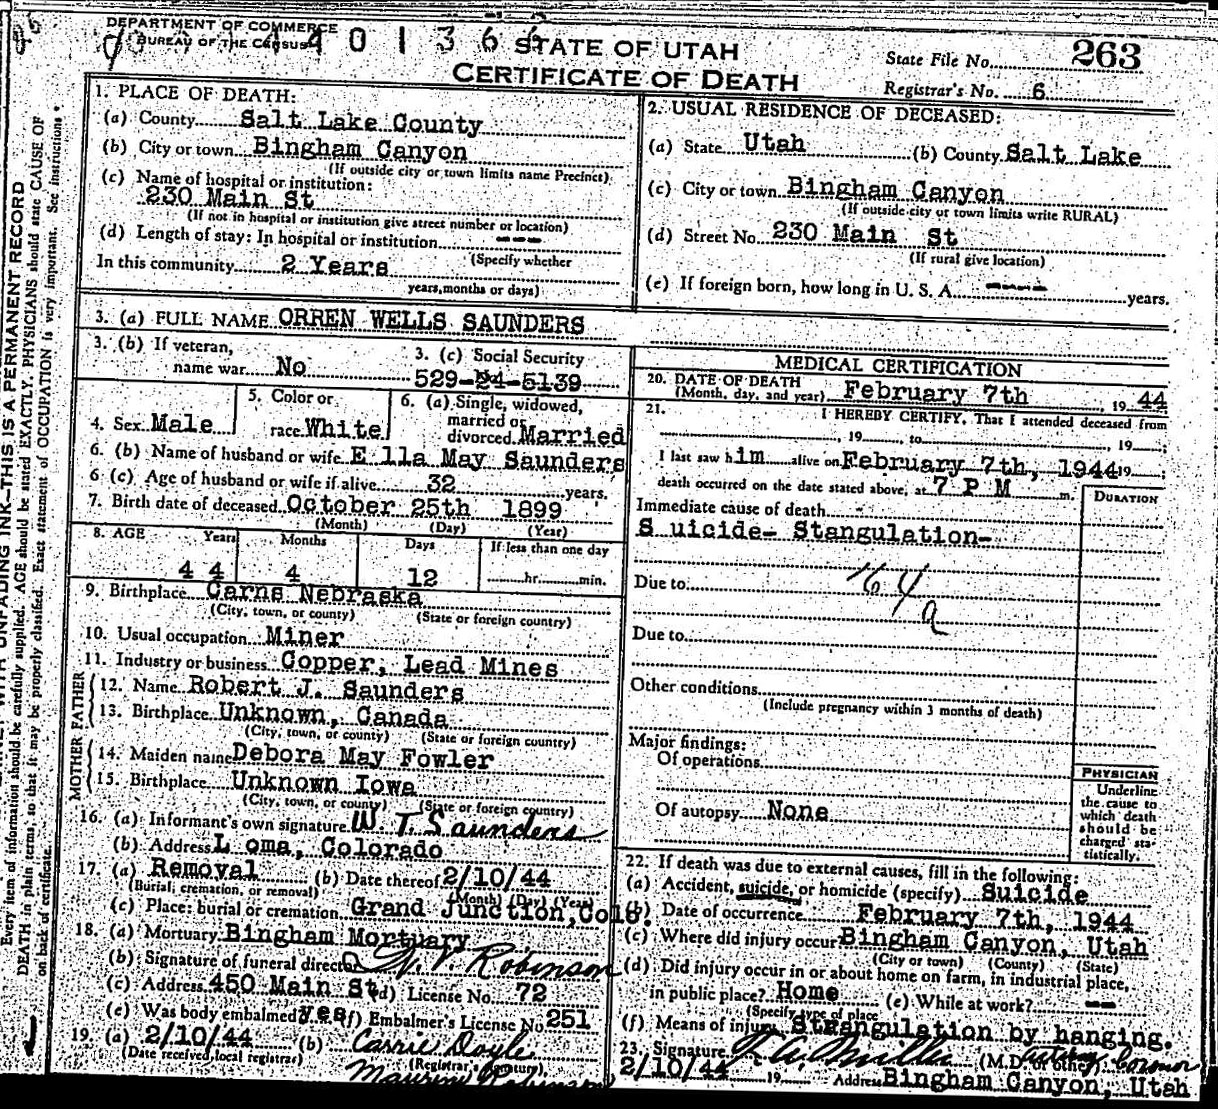 DEPARTMENT OF COMMERCE
BUREAU OF THE CENSUS
STATE OF UTAH
CERTIFICATE OF DEATH
State File No. 263
Registrar's No. 6
1. PLACE OF DEATH:
(a) County Salt Lake County
(b) City or town Bingham Canyon
(If outside city or town limits name Precinct)
(c) Name of hospital or institution:
230 Main St
(If not in hospital or institution give street number or location)
(d) Length of stay: In hospital or institution ---
(Specify whether
In this community 2 Years
years, months or days)
2. USUAL RESIDENCE OF DECEASED:
(a) State Utah (b) County Salt Lake
(c) City or town Bingham Canyon
(If outside city or town limits write RURAL)
(d) Street No. 230 Main St
(If rural give location)
(e) If foreign born, how long in U. S. A. ---- years.
3. (a) FULL NAME ORREN WELLS SAUNDERS
3. (b) If veteran,
name war No
3. (c) Social Security
529-24-5139
4. Sex Male
5. Color or
race White
6. (a) Single, widowed,
married or
divorced Married
6. (b) Name of husband or wife E lla May Saunders
6 (c) Age of husband or wife if alive 32 years.
7. Birth date of deceased October 25th 1899
(Month) (Day) (Year)
8. AGE Years Months Days If less than one day
4 4 4 12 hr. min.
9. Birthplace Carns Nebraska
(City, town, or county) (State or foreign country)
10. Usual occupation Miner
11. Industry or business Copper, Lead Mines
FATHER
12. Name Robert J. Saunders
13. Birthplace Unknown, Canada
(City, town, or county) (State or foreign country)
MOTHER
14. Maiden name Debora May Fowler
15. Birthplace Unknown Iowa
(City, town, or county) (State or foreign country)
16. (a) Informant's own signature W. T. Saunders
(b) Address L oma, Colorado
17. (a) Removal (b) Date thereof 2/10/44
(Burial, cremation, or removal) (Month) (Day) (Year)
(c) Place: burial or cremation Grand Junction, Colo.
18. (a) Mortuary Bingham Mortuary
(b) Signature of funeral director Robinson
(c) Address 450 Main St (d) License No. 72
(e) Was body embalmed yes (f) Embalmer's License No 251
19. (a) 2/10/44 (b) Carrie Doyle
(Date received local registrar) (Registrar's signature)
MEDICAL CERTIFICATION
20. DATE OF DEATH
(Month, day, and year) February 7th, 19 44
21. I HEREBY CERTIFY, That I attended deceased from
, 19 , to , 19 ;
I last saw him alive on February 7th, 1944 19 ;
death occurred on the date stated above, at 7 P M m.
DURATION
Immediate cause of death
S uicide- Stangulation-
Due to 164
a
Due to
Other conditions
(Include pregnancy within 3 months of death)
Major findings:
Of operations
Of autopsy None
PHYSICIAN
Underline
the cause to
which death
should be
charged sta-
tistically.
22. If death was due to external causes, fill in the following:
(a) Accident, suicide, or homicide (specify) Suicide
(b) Date of occurrence February 7th, 1944
(c) Where did injury occur Bingham Canyon, Utah
(City or town) (County) (State)
(d) Did injury occur in or about home on farm, in industrial place,
in public place? Home (e) While at work? --
(Specify type of place
(f) Means of injury Strangulation by hanging.
23. Signature (M.D. or other)
2/10/44 19 Address Bingham Canyon, Utah
THIS IS A PERMANENT RECORD
Every item of information should be carefully supplied. AGE should be stated EXACTLY. PHYSICIANS should state CAUSE OF
DEATH in plain terms, so that it may be properly classified. Exact statement of OCCUPATION is very important. See instructions
on back of certificate.